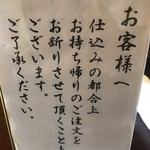 お客様へ
仕込みの都合上
お持ち帰りのご注文を
お断りさせて頂くことも
ございます。
ご了承ください。